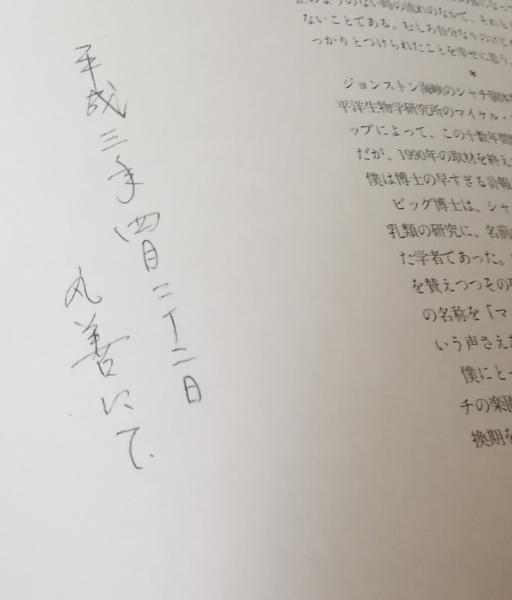 平成三年四月二十二日
丸善にて
ないことである。むしろ自分なりのけじめ
っかりとつけられたことを幸せに思う。
*
ジョンストン海峡のシャチ個体
平洋生物学研究所のマイケル・
ップによって、この十数年間
だが、1990年の取材を終え
僕は博士の早すぎる訃報
ビッグ博士は、シャ
乳類の研究に、名前
た学者であった。
を賛えつつその
の名称を「マ
いう声さえ
僕にとっ
チの楽園
換期を